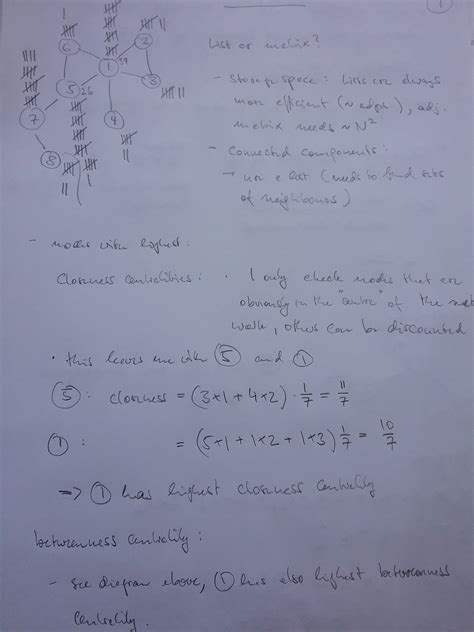 1
List or matrix?
- storage space: Lists are always
more efficient (~ edges), adj.
matrix needs ~ N²
- connected components:
→ use a list (needs to find sets
of neighbours)
6
2
1
39
3
5
26
7
4
8
- nodes with highest:
Closeness centralities: • I only check nodes that are
obviously in the "centre" of the net
work, others can be discounted
• this leaves me with 5 and 1
5: closeness = (3×1 + 4×2) · 1/7 = 11/7
1: = (5×1 + 1×2 + 1×3) 1/7 = 10/7
=> 1 has highest closeness centrality
betweenness centrality:
- see diagram above, 1 has also highest betweenness
centrality.